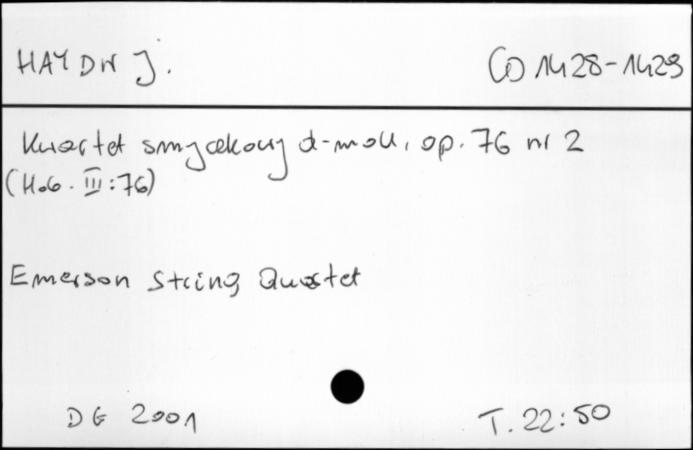 HAYDN J. CD 1428-1429
Kwartet smyczkowy d-moll, op. 76 nr 2
(Hob. III:76)
Emerson String Quartet
DG 2001 T. 22:50